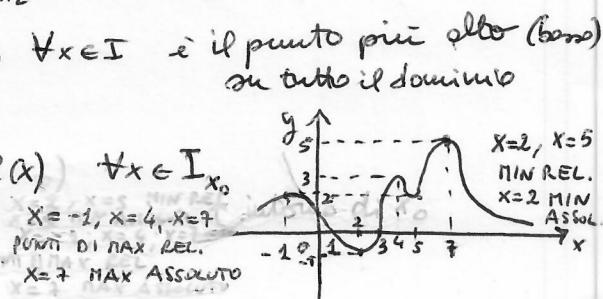 ∀x∈I è il punto più alto (basso)
su tutto il dominio
(x) ∀x∈I x₀
X=-1, X=4, X=7
PUNTI DI MAX REL.
X=7 MAX ASSOLUTO
y
5
3
2
-1 0 1 2 3 4 5 7 x
-1
X=2, X=5
MIN REL.
X=2 MIN
ASSOL.